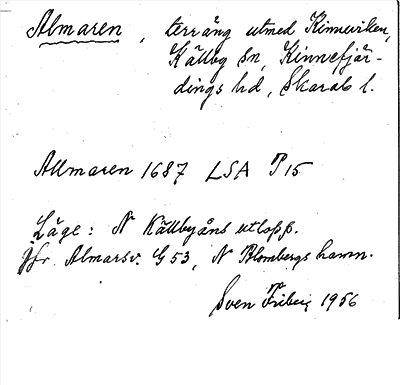 Almaren, terräng utmed Kinneviken,
Källby sn, Kinnefjär-
dings hd, Skarab l.
Allmaren 1687 LSA P15
Läge: N Källbyåns utlopp.
Jfr Almarsv. G53, N Blombergs hamn.
Sven Friberg 1956